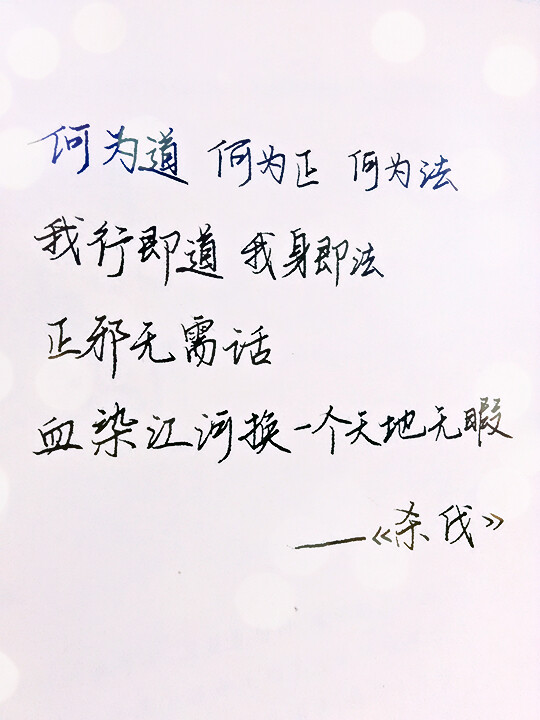 何为道 何为正 何为法
我行即道 我身即法
正邪无需话
血染江河换一个天地无暇
——《杀伐》